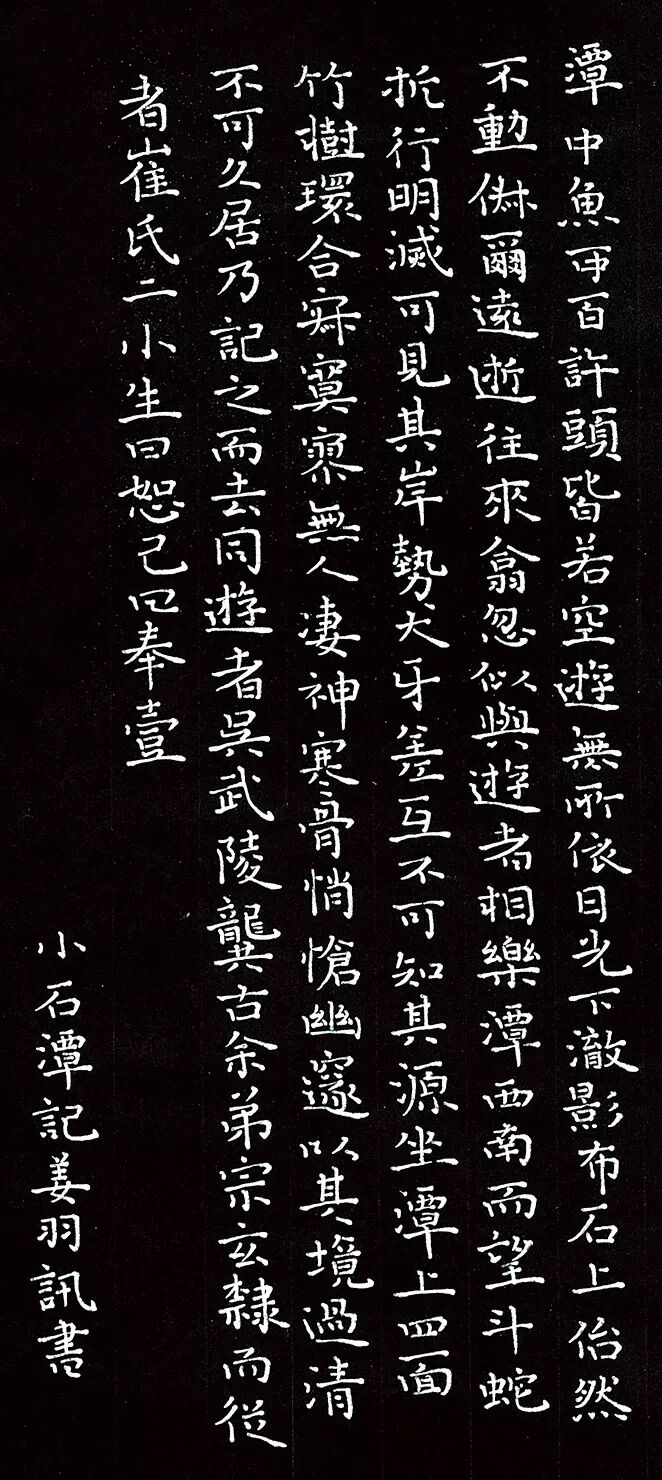 潭中魚可百許頭皆若空遊無所依日光下澈影布石上佁然
不動俶爾遠逝往來翕忽似與遊者相樂潭西南而望斗蛇
折行明滅可見其岸勢犬牙差互不可知其源坐潭上四面
竹樹環合寂寞寥無人凄神寒骨悄愴幽邃以其境過清
不可久居乃記之而去同遊者吳武陵龔古余弟宗玄隸而從
者崔氏二小生曰恕己曰奉壹
小石潭記姜羽訊書